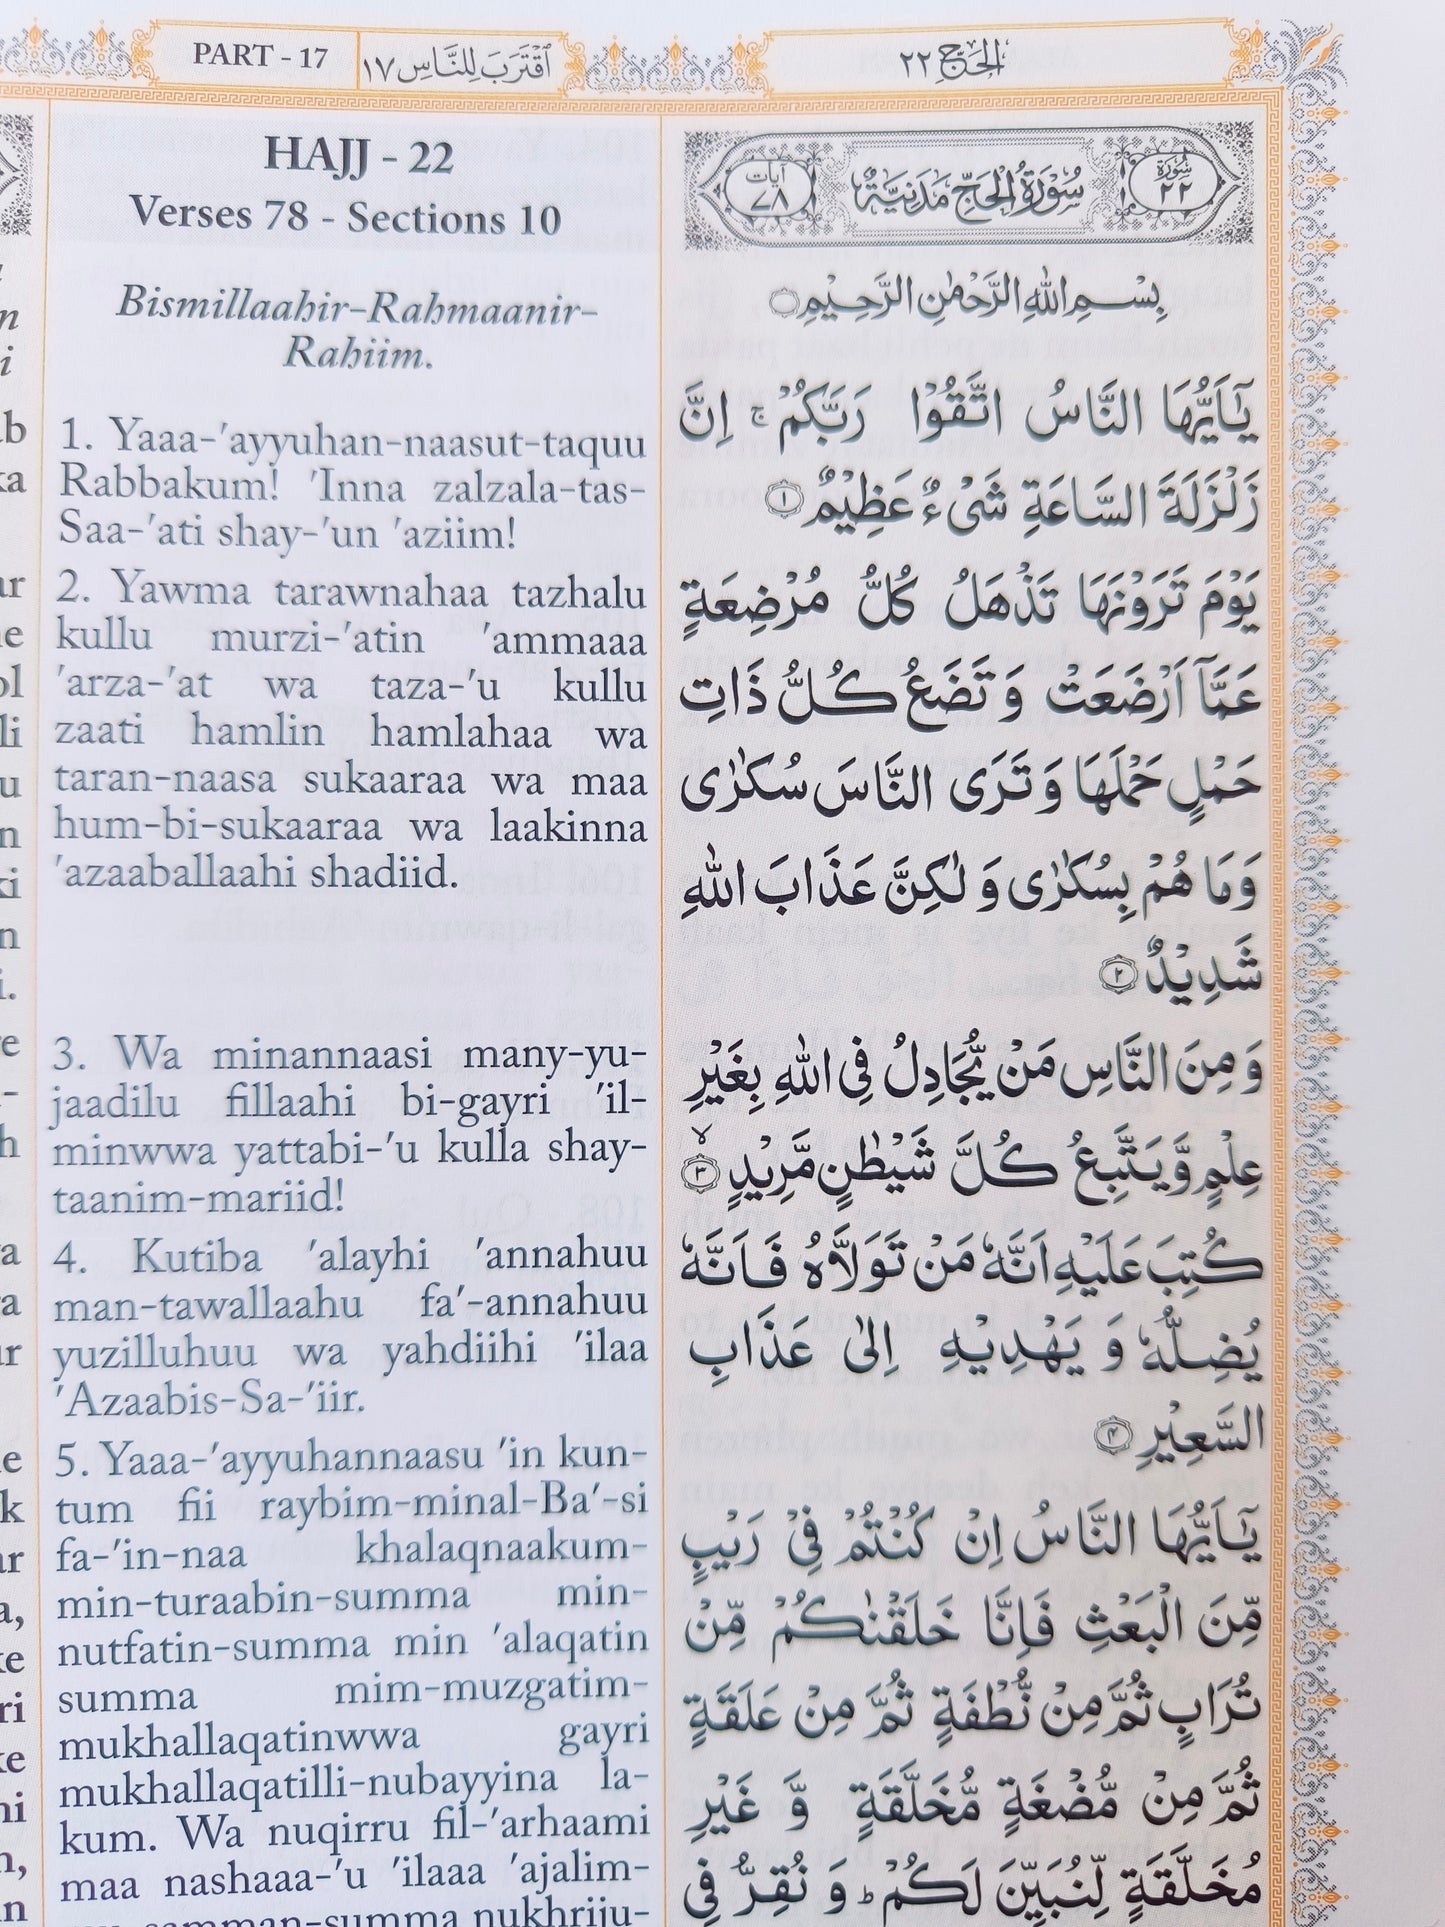 PART - 17
اَقْتَرَبَ لِلنَّاسِ ١٧
الحَجّ ٢٢
HAJJ - 22
Verses 78 - Sections 10
Bismillaahir-Rahmaanir-
Rahiim.
1. Yaaa-'ayyuhan-naasut-taquu
Rabbakum! 'Inna zalzala-tas-
Saa-'ati shay-'un 'aziim!
2. Yawma tarawnahaa tazhalu
kullu murzi-'atin 'ammaaa
'arza-'at wa taza-'u kullu
zaati hamlin hamlahaa wa
taran-naasa sukaaraa wa maa
hum-bi-sukaaraa wa laakinna
'azaaballaahi shadiid.
3. Wa minannaasi many-yu-
jaadilu fillaahi bi-gayri 'il-
minwwa yattabi-'u kulla shay-
taanim-mariid!
4. Kutiba 'alayhi 'annahuu
man-tawallaahu fa'-annahuu
yuzilluhuu wa yahdiihi 'ilaa
'Azaabis-Sa-'iir.
5. Yaaa-'ayyuhannaasu 'in kun-
tum fii raybim-minal-Ba'-si
fa-'in-naa khalaqnaakum-
min-turaabin-summa min-
nutfatin-summa min 'alaqatin
summa mim-muzgatim-
mukhallaqatinwwa gayri
mukhallaqatilli-nubayyina la-
kum. Wa nuqirru fil-'arhaami
maa nashaaa-'u 'ilaaa 'ajalim-
samman-summa nukhriju-
سُورَة ٢٢
سُورَةُ الْحَجِّ مَدَنِيَّةٌ
اٰيات ٧٨
بِسْمِ اللهِ الرَّحْمٰنِ الرَّحِيْمِ
يٰٓاَيُّهَا النَّاسُ اتَّقُوْا رَبَّكُمْ ۚ اِنَّ
زَلْزَلَةَ السَّاعَةِ شَیْءٌ عَظِيْمٌ ١
يَوْمَ تَرَوْنَهَا تَذْهَلُ كُلُّ مُرْضِعَةٍ
عَمَّآ اَرْضَعَتْ وَ تَضَعُ كُلُّ ذَاتِ
حَمْلٍ حَمْلَهَا وَ تَرَى النَّاسَ سُكٰرٰى
وَمَا هُمْ بِسُكٰرٰى وَ لٰكِنَّ عَذَابَ اللهِ
شَدِيْدٌ ٢
وَ مِنَ النَّاسِ مَنْ يُّجَادِلُ فِى اللهِ بِغَيْرِ
عِلْمٍ وَّيَتَّبِعُ كُلَّ شَيْطٰنٍ مَّرِيْدٍ ۙ ٣
كُتِبَ عَلَيْهِ اَنَّهٗ مَنْ تَوَلَّاهُ فَاَنَّهٗ
يُضِلُّهٗ وَ يَهْدِيْهِ اِلٰى عَذَابِ
السَّعِيْرِ ۴
يٰٓاَيُّهَا النَّاسُ اِنْ كُنْتُمْ فِىْ رَيْبٍ
مِّنَ الْبَعْثِ فَاِنَّا خَلَقْنٰكُمْ مِّنْ
تُرَابٍ ثُمَّ مِنْ نُّطْفَةٍ ثُمَّ مِنْ عَلَقَةٍ
ثُمَّ مِنْ مُّضْغَةٍ مُّخَلَّقَةٍ وَّ غَيْرِ
مُخَلَّقَةٍ لِّنُبَيِّنَ لَكُمْ ؕ وَ نُقِرُّ فِى